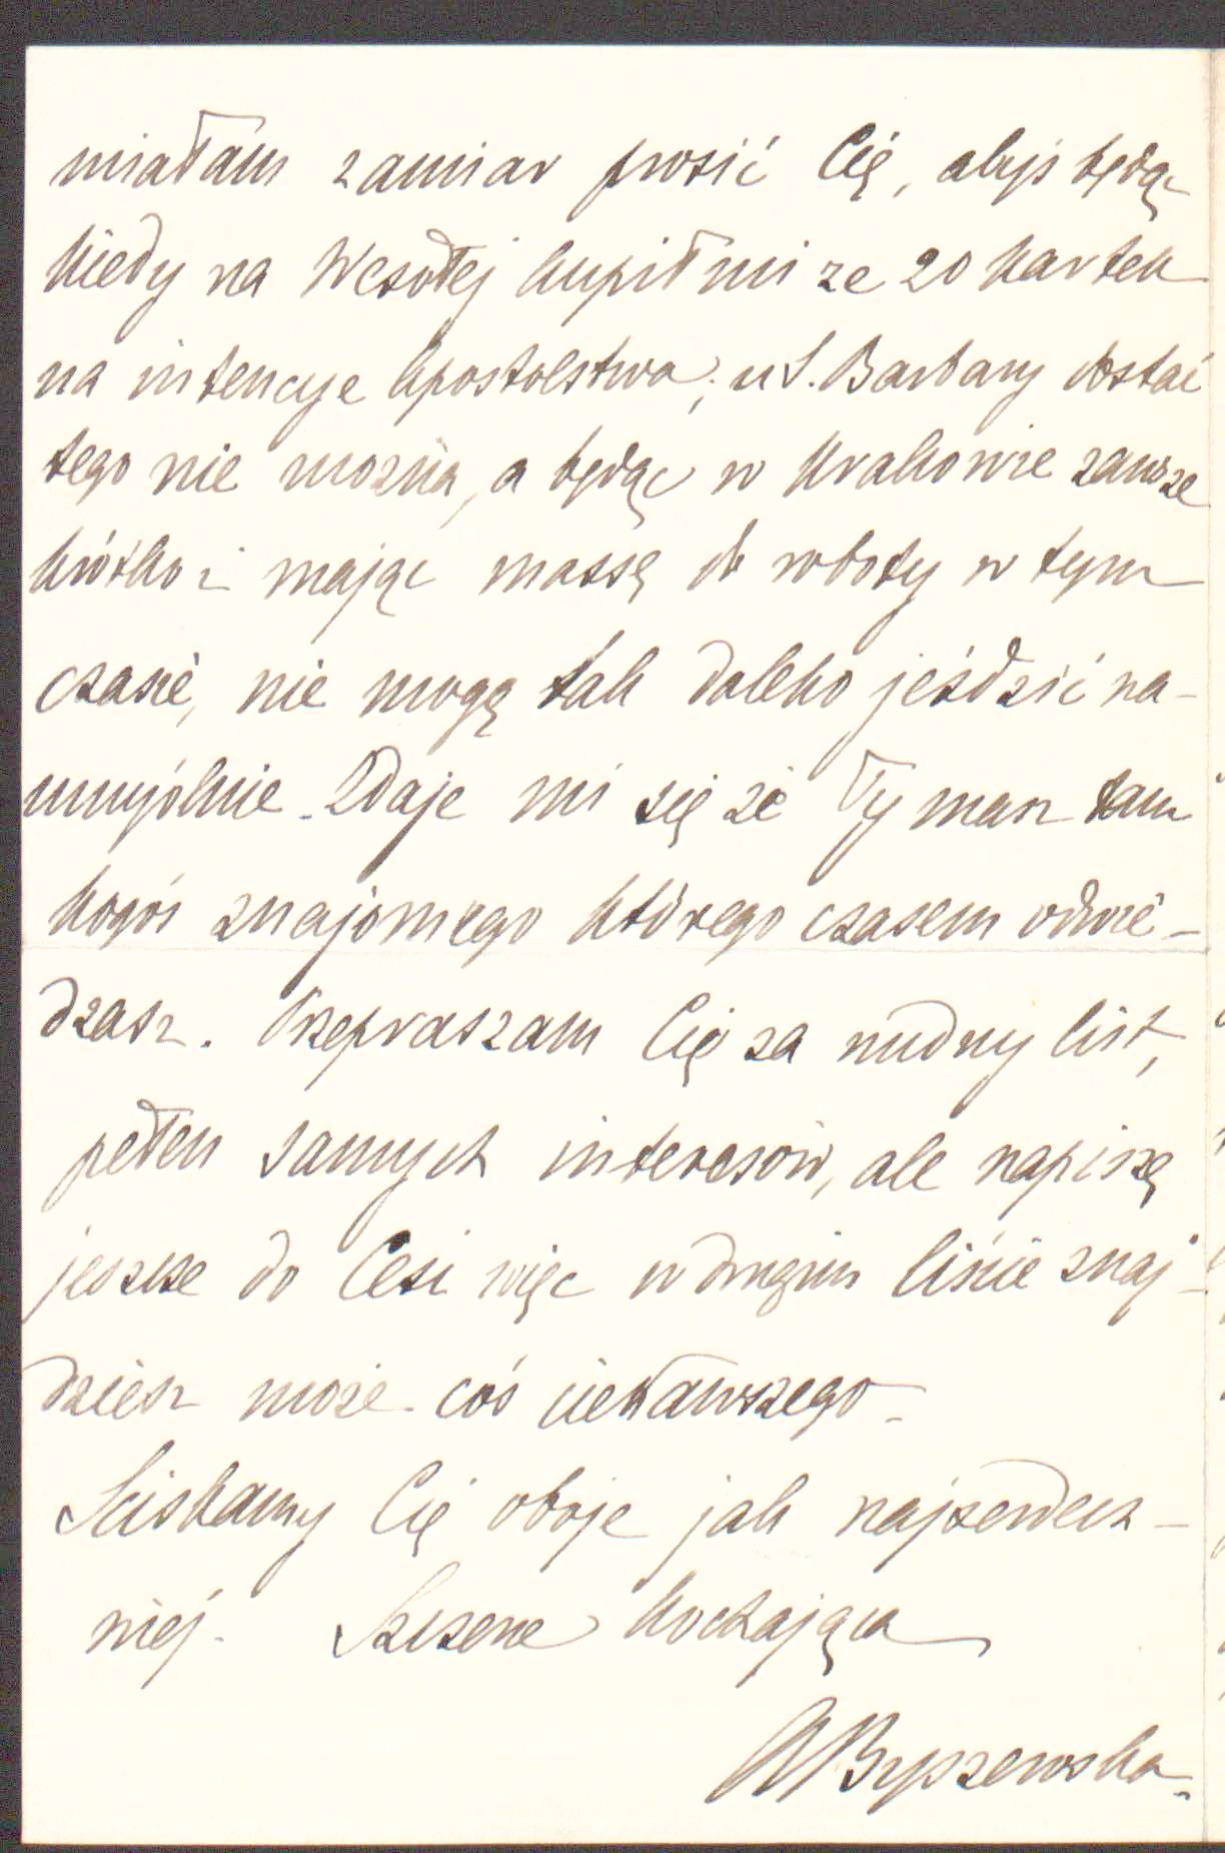 miałam zamiar prosić Cię, abyś będąc
kiedy na Wesołej kupił mi ze 20 kartek
na intencye Apostolstwa; u S. Barbary dostać
tego nie można, a będąc w Krakowie zawsze
krótko i mając massę do roboty w tym
czasie, nie mogę tak daleko jeździć na-
umyślnie. Zdaje mi się że Ty masz tam
kogoś znajomego którego czasem odwie-
dzasz. Przepraszam Cię za nudny list,
pełen samych interesów, ale napiszę
jeszcze do Cesi więc w drugim liście znaj-
dziesz może coś ciekawszego.
Sciskamy Cię oboje jak najserdecz-
niej. Szczerze kochająca
MByszewska.